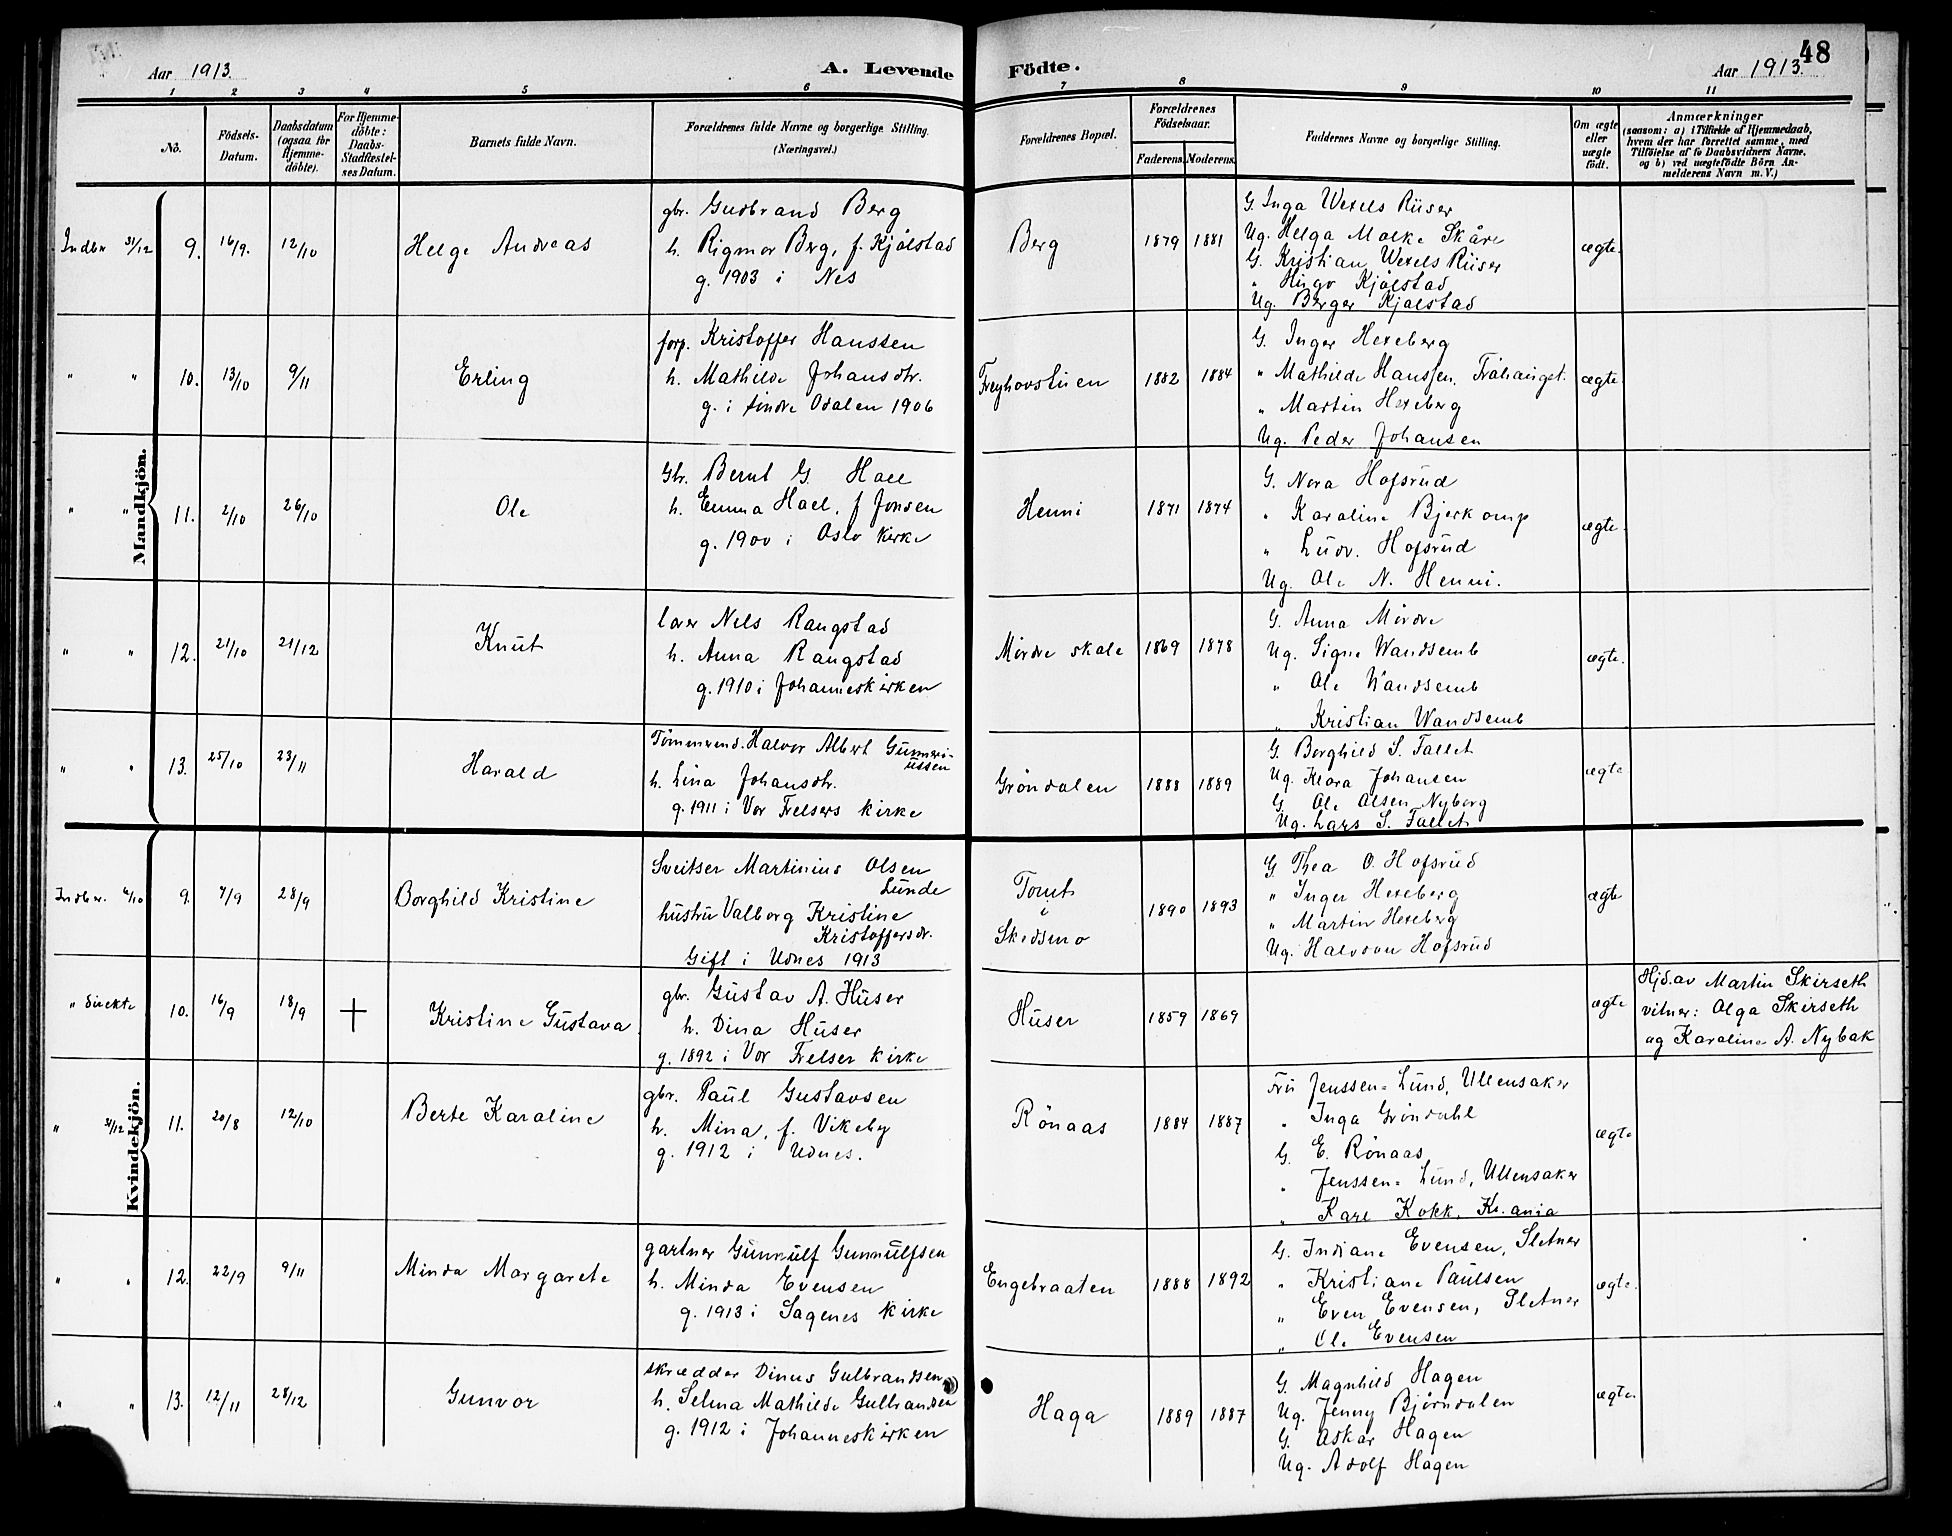 48
Aar 1913. A. Levende Födte. Aar 1913.
1 2 3 4 5 6 7 8 9 10 11
No. Födsels-Datum. Daabsdatum (ogsaa for Hjemme-döbte). For Hjemme-döbte: Daabs-Stadfæstel-ses Datum. Barnets fulde Navn. Forældrenes fulde Navne og borgerlige Stilling. (Næringsvei.) Forældrenes Bopæl. Forældrenes Födselsaar. Faderens. Moderens. Faddernes Navne og borgerlige Stilling. Om ægte eller uægte födt. Anmærkninger (saasom: a) i Tilfælde af Hjemmedaab, hvem der har forrettet samme, med Tilföielse af to Daabsvidners Navne, og b) ved uægtefödte Börn An-melderens Navn m. V.)
Mandkjön.
Indbr 31/12 9. 16/9. 12/10 Helge Andreas
gbr. Gudbrand Berg
h. Rigmor Berg, f. Kjølstad
g. 1903 i Nes
Berg 1879 1881
G. Inga Wexels Riiser
Ug. Helga Molke Skåre
G. Kristian Wexels Riiser
" Hugo Kjølstad
Ug. Berger Kjølstad
ægte.
" " 10. 13/10 9/11 Erling
forp. Kristoffer Hanssen
h. Mathilde Johansdtr.
g. i søndre Odalen 1906
Freyhovstuen 1882 1884
G. Inger Hexeberg
" Mathilde Hanssen, Fråhauget.
" Martin Hexeberg
Ug. Peder Johansen
ægte.
" " 11. 2/10 26/10 Ole
Gbr. Bernt G. Hael
h. Emma Hael, f Jonsen
g. 1900 i Oslo kirke
Henni 1871 1874
G. Nora Hofsrud
" Karoline Bjerkomp
" Ludv. Hofsrud
Ug. Ole N. Henni.
ægte.
" " 12. 21/10 21/12 Knut
lærer Nels Rangstad
h. Anna Rangstad
g. 1910 i Johanneskirken
Mørdre skole 1869 1878
G. Anna Mørdre
Ug. Signe Wandsemb
" Ole Wandsemb
" Kristian Wandsemb
ægte.
" " 13. 25/10 23/11 Harald
Tømmermd. Halvor Albert Gunneri-
ussen
h. Lina Johansdtr.
g. 1911 i Vor Frelsers kirke
Grøndalen 1888 1889
G. Borghild S. Fallet
Ug. Klara Johansen
G. Ole Olsen Nyborg
Ug. Lars S. Fallet
ægte
Kvindekjön.
Indber. 6/10 9. 7/9 28/9 Borghild Kristine
Sveitser Martinius Olsen
Lunde
hustru Valborg Kristine
Kristoffersdr.
Gift i Udnes 1913
Tomt
i
Skedsmo
1890 1893
G Thea O. Hofsrud
" Inger Hexeberg
" Martin Hexeberg
Ug. Halvdan Hofsrud
ægte
" direkte 10. 16/9 18/9 + Kristine Gustava
gbr. Gustav A. Huser
h. Dina Huser
g. 1892 i Vor Frelser kirke
Huser 1859 1869
ægte
Hjd. av Martin Skirseth
vitner: Olga Skirseth
og Karoline A. Nybak
" 31/12 11. 20/8 12/10 Berte Karoline
gbr. Paul Gustavsen
h. Mina, f. Vikeby
g. 1912 i Udnes.
Rönaas 1884 1887
Fru Jenssen-Lund, Ullensaker
" Inga Grøndahl
G. E. Rönaas
" Jenssen-Lund, Ullensaker
" Karl Kokk, Kr.ania
ægte
" " 12. 22/9 9/11 Minda Margarete
gartner Gunnulf Gunnulfsen
h. Minda Evensen
g. 1913 i Sagenes kirke
Engebraaten 1888 1892
G. Indiane Evensen, Sletner
" Kristiane Paulsen
" Even Evensen, Sletner
" Ole Evensen
ægte.
" " 13. 12/11 28/12 Gunvor
skrædder Dinus Gulbrandsen
h. Selma Mathilde Gulbrandsen
g. 1912 i Johanneskirken
Haga 1889 1887
G. Magnhild Hagen
Ug. Jenny Bjørndalen
G. Oskar Hagen
Ug. Adolf Hagen
ægte.